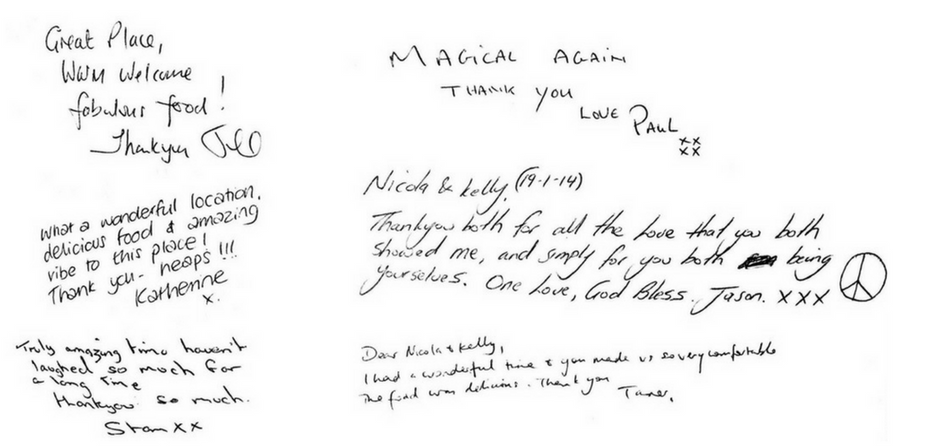 Great Place,
Warm Welcome
fabulous food!
Thankyou Jill
What a wonderful location,
delicious food & amazing
vibe to this place!
Thank you - heaps!!!
Katherine
x.
Truly amazing time haven't
laughed so much for
a long time
thankyou so much.
xx
MAGICAL AGAIN
THANK YOU
LOVE PAUL
xx
xx
Nicola & Kelly, (19-1-14)
Thankyou both for all the Love that you both
showed me, and simply for you both being
yourselves. One Love, God Bless. Jason. xxx
Dear Nicola & Kelly,
I had a wonderful time & you made us so very comfortable
The food was delicious. Thank you